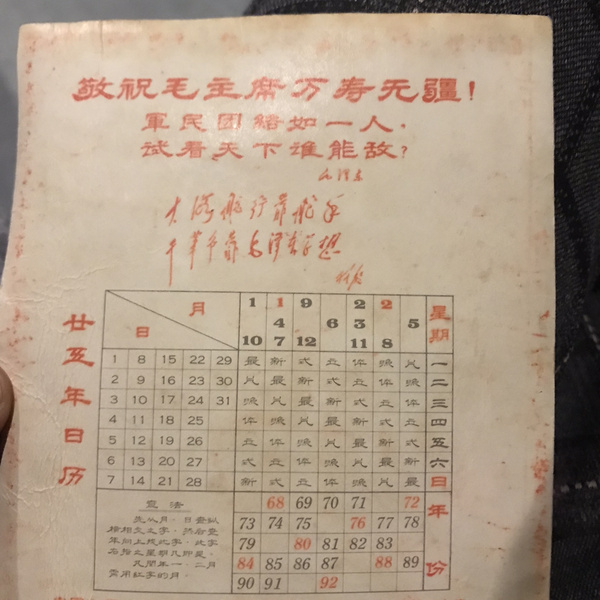 敬祝毛主席万寿无疆!
軍民团結如一人,
试看天下谁能敌?
毛泽东
大海航行靠舵手
干革命靠毛泽东思想
林彪
廿五年日历
月 1 1 9 2 2 星期
日 4 6 3 5
10 7 12 11 8
1 8 15 22 29 最 新 式 体 一
2 9 16 23 30 最 新 式 体 二
3 10 17 24 31 最 新 式 体 三
4 11 18 25 体 最 新 式 四
5 12 19 26 体 最 新 式 五
6 13 20 27 式 体 最 新 六
7 14 21 28 新 式 体 最 日
查法
68 69 70 71 72 年份
73 74 75 76 77 78
79 80 81 82 83
84 85 86 87 88 89
90 91 92
先从月、日查纵
横相交之字,然后查
年
此字
右指之星期几即是。
凡闰年一、二月
需用红字的月。